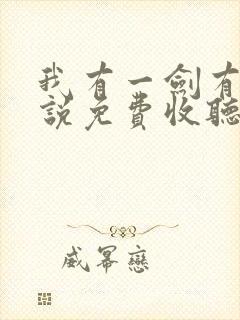 我有一劍有
說免費收聽
威冪戀